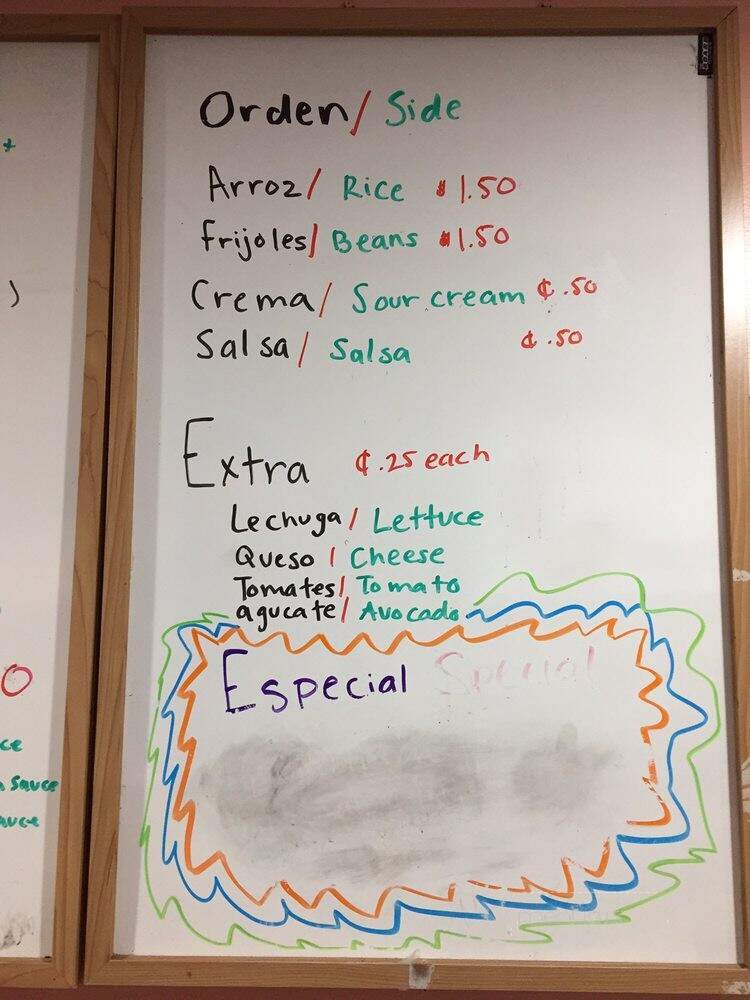 Orden/ Side
Arroz/ Rice $1.50
frijoles/ Beans $1.50
Crema/ Sour cream ¢.50
Salsa/ Salsa ¢.50
Extra ¢.25 each
Lechuga/ Lettuce
Queso / Cheese
Tomates/ Tomato
agucate/ Avocado
Especial Special
ce
Sauce
auce